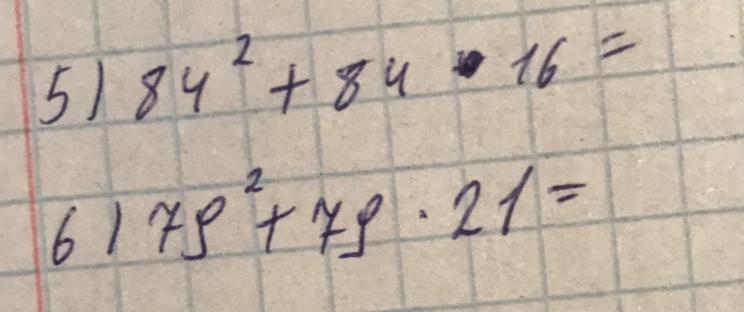 5) 84² + 84 • 16 =
6) 79² + 79 · 21 =